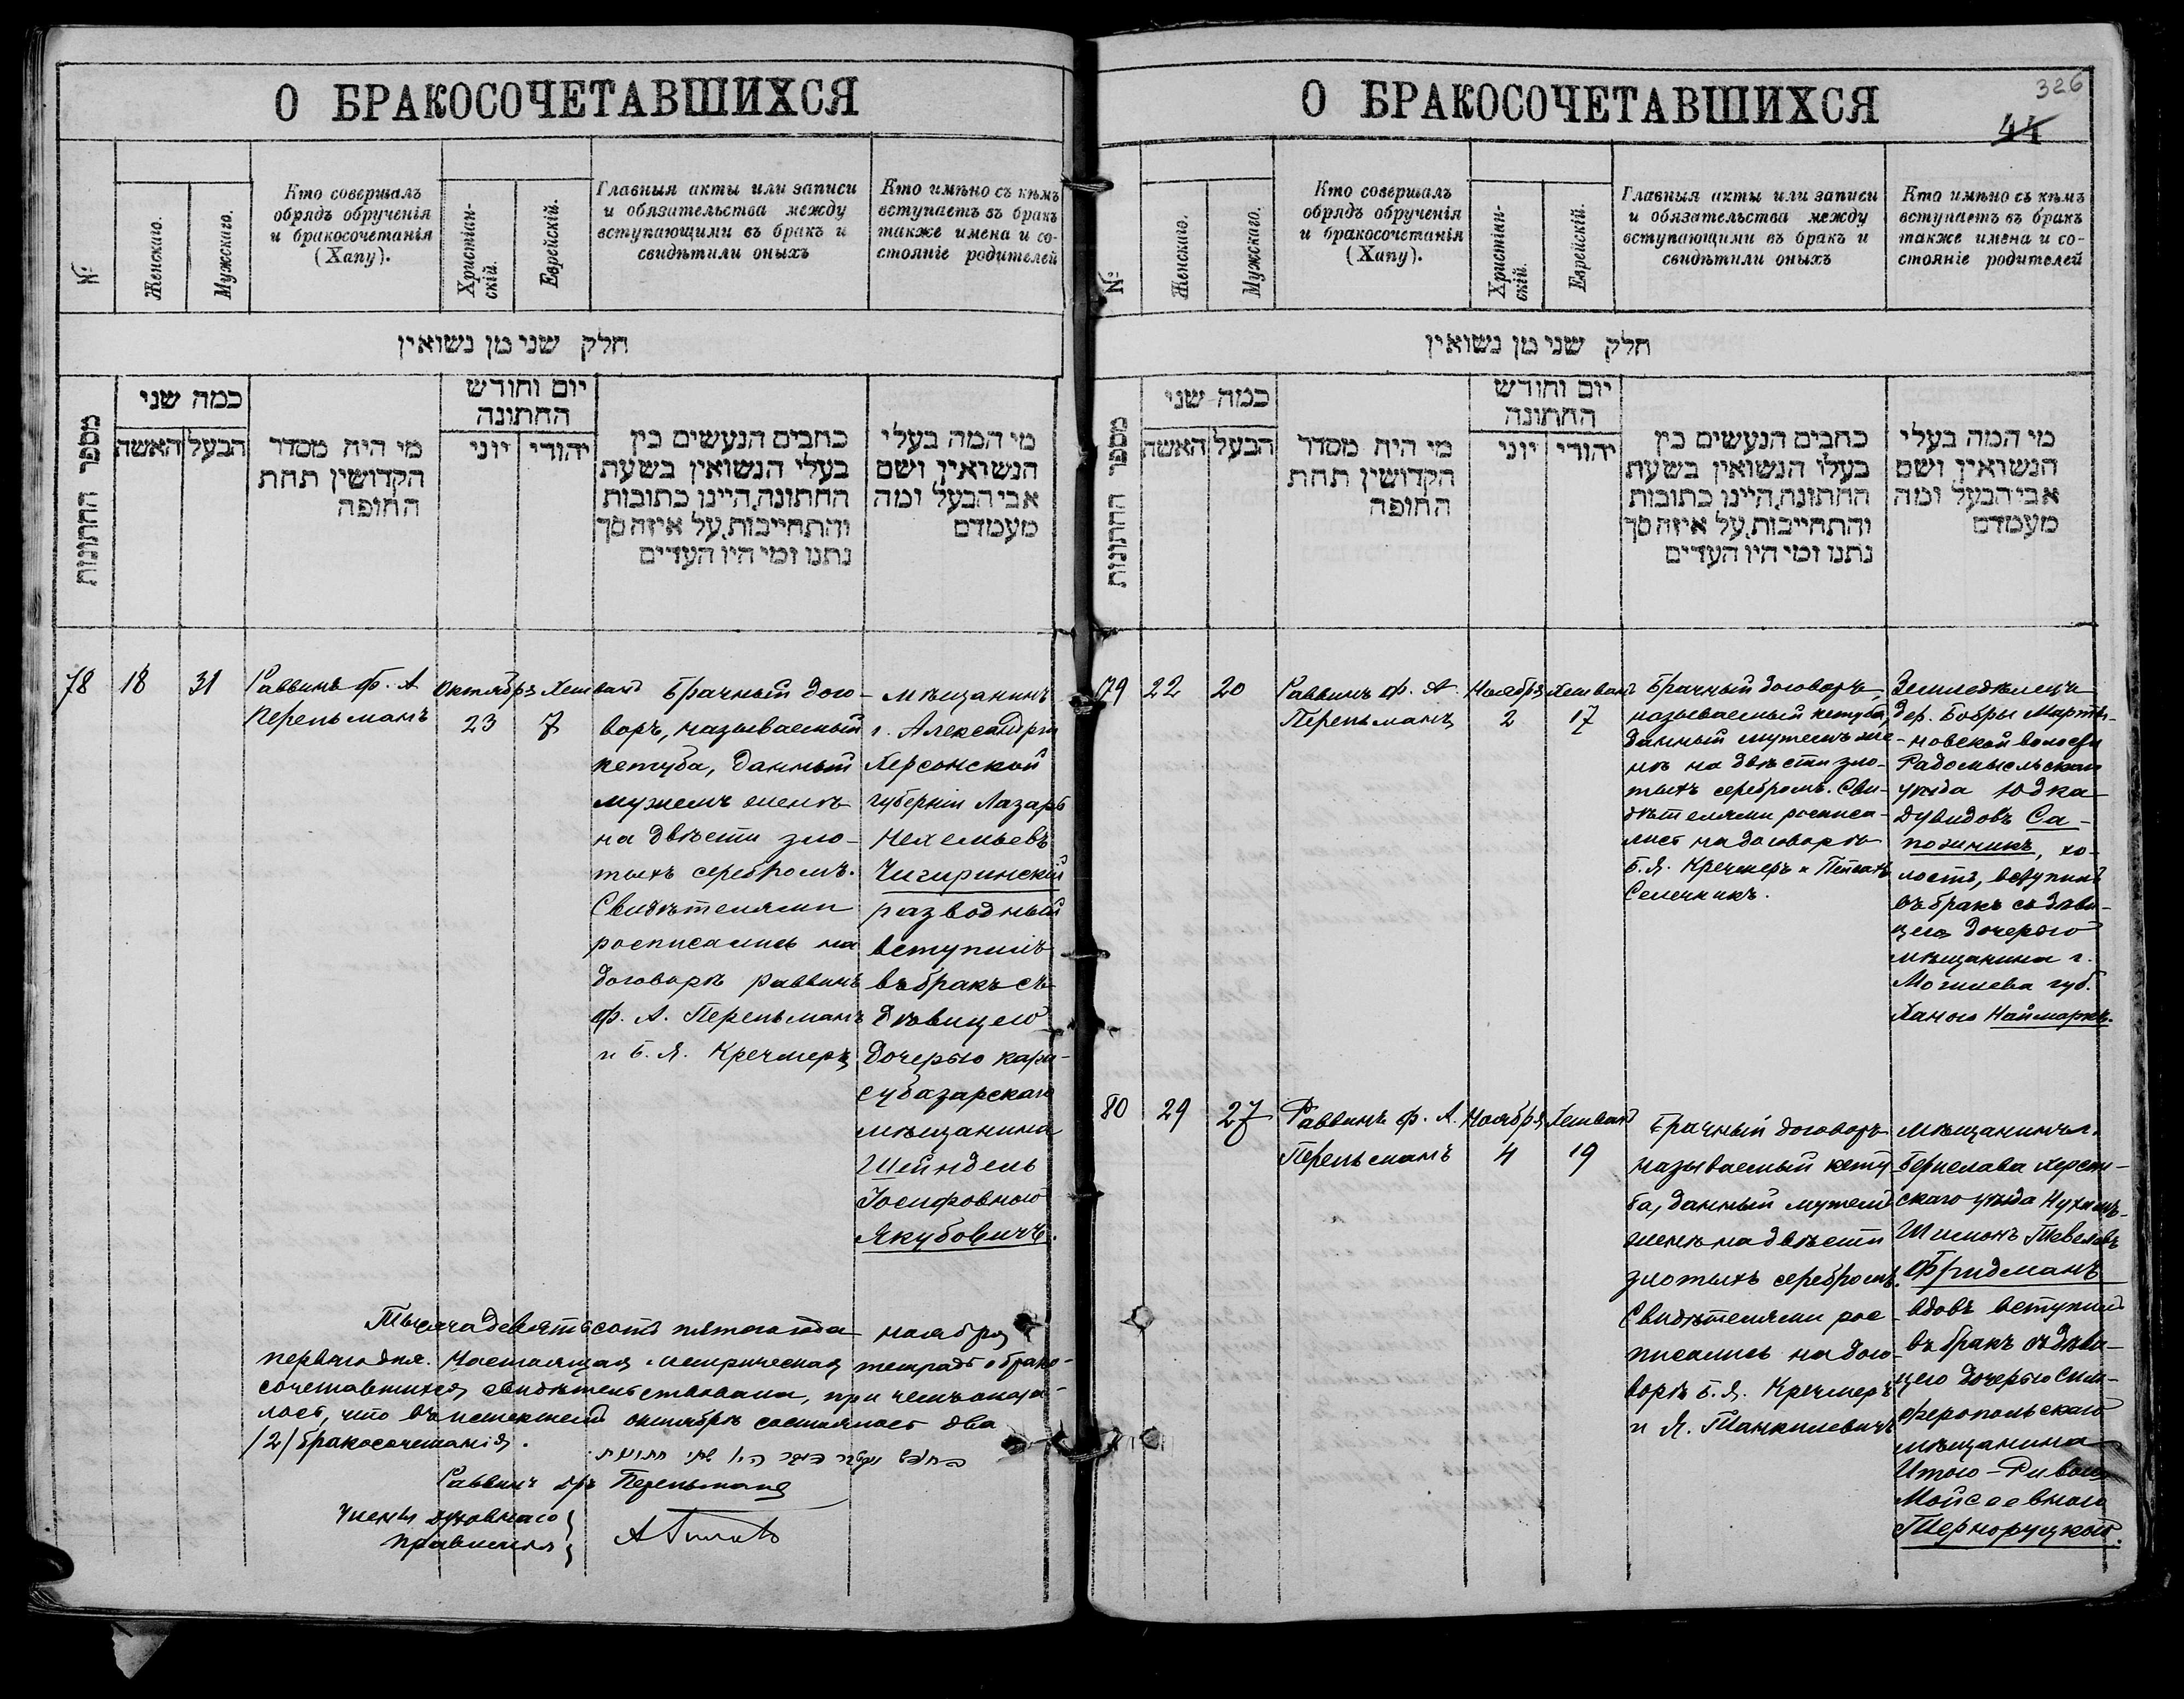 О БРАКОСОЧЕТАВШИХСЯ
№
Женскаго.
Мужскаго.
Кто совершалъ
обрядъ обрученія
и бракосочетанія
(Хапу).
Христіан-
скій.
Еврейскій.
Главныя акты или записи
и обязательства между
вступающими въ бракъ и
свидѣтили оныхъ
Кто имѣно съ кѣмъ
вступаетъ въ бракъ
также имена и со-
стояніе родителей
חלק שני מן נשואין
מספר החתונות
כמה שני
האשה
הבעל
מי היה מסדר
הקדושין תחת
החופה
יום וחודש
החתונה
יוני
יהודי
כתבים הנעשים בין
בעלי הנשואין בשעת
החתונה, היינו כתובות
והתחייבות, על איזה סך
נתנו ומי היו העדים
מי המה בעלי
הנשואין ושם
אבי הבעל ומה
מעמדם
78
18
31
Раввинъ Ф. А
Перельманъ
Октябрь
23
Хешванъ
7
Брачный дого-
воръ, называемый
кетуба, данный
мужемъ женѣ
на двѣсти зло-
тыхъ серебромъ.
Свидѣтелями
росписались на
договорѣ раввинъ
Ф. А. Перельманъ
и Б. Я. Кречмеръ
Мѣщанинъ
г. Александріи
Херсонской
губерніи Лазарь
Нехемьевъ
Чигиринскій
разводный
вступилъ
въ бракъ съ
дѣвицею
дочерью кара-
субазарскаго
мѣщанина
Шейндель
Іосифовною
Якубовичъ.
Тысяча девятьсотъ пятаго года ноября
перваго дня. Настоящая метрическая тетрадь о брако-
сочетавшихся свидѣтельствована, при чемъ оказа-
лось, что въ истекшемъ октябрѣ состоялось два
/2/ бракосочетанія.
Раввинъ Перельманъ
Члены духовнаго
правленія
О БРАКОСОЧЕТАВШИХСЯ
326
44
№
Женскаго.
Мужскаго.
Кто совершалъ
обрядъ обрученія
и бракосочетанія
(Хапу).
Христіан-
скій.
Еврейскій.
Главныя акты или записи
и обязательства между
вступающими въ бракъ и
свидѣтили оныхъ
Кто имѣно съ кѣмъ
вступаетъ въ бракъ
также имена и со-
стояніе родителей
חלק שני מן נשואין
מספר החתונות
כמה שני
האשה
הבעל
מי היה מסדר
הקדושין תחת
החופה
יום וחודש
החתונה
יוני
יהודי
כתבים הנעשים בין
בעלי הנשואין בשעת
החתונה, היינו כתובות
והתחייבות, על איזה סך
נתנו ומי היו העדים
מי המה בעלי
הנשואין ושם
אבי הבעל ומה
מעמדם
79
22
20
Раввинъ Ф. А.
Перельманъ
Ноябрь
2
Хешванъ
17
Брачный договоръ
называемый кетуба,
данный мужемъ же-
нѣ на двѣсти зло-
тыхъ серебромъ. Сви-
дѣтелями росписа-
лись на договорѣ
Б. Я. Кречмеръ и
Земледѣлецъ
дер. Бобры Марты-
новской волости
Радомысльскаго
уѣзда Юдка
Дувидовъ Са-
пожникъ, хо-
лостъ, вступилъ
въ бракъ съ дѣви-
цею дочерью
мѣщанина г.
Могилева губ.
Ханою Наймаркъ.
80
29
27
Раввинъ Ф. А.
Перельманъ
Ноябрь
4
Хешванъ
19
Брачный договоръ
называемый кету-
ба, данный мужемъ
женѣ на двѣсти
злотыхъ серебромъ.
Свидѣтелями рос-
писались на дого-
ворѣ Б. Я. Кречмеръ
и Я. Танкилевичъ
Мѣщанинъ г.
Берислава Херсон-
скаго уѣзда Нухимъ-
Шимонъ Тевелевъ
Фридманъ
вдовъ вступилъ
въ бракъ съ дѣви-
цею дочерью Сим-
феропольскаго
мѣщанина
Итою-Ривою
Мойсеевною
Терноруцкою.